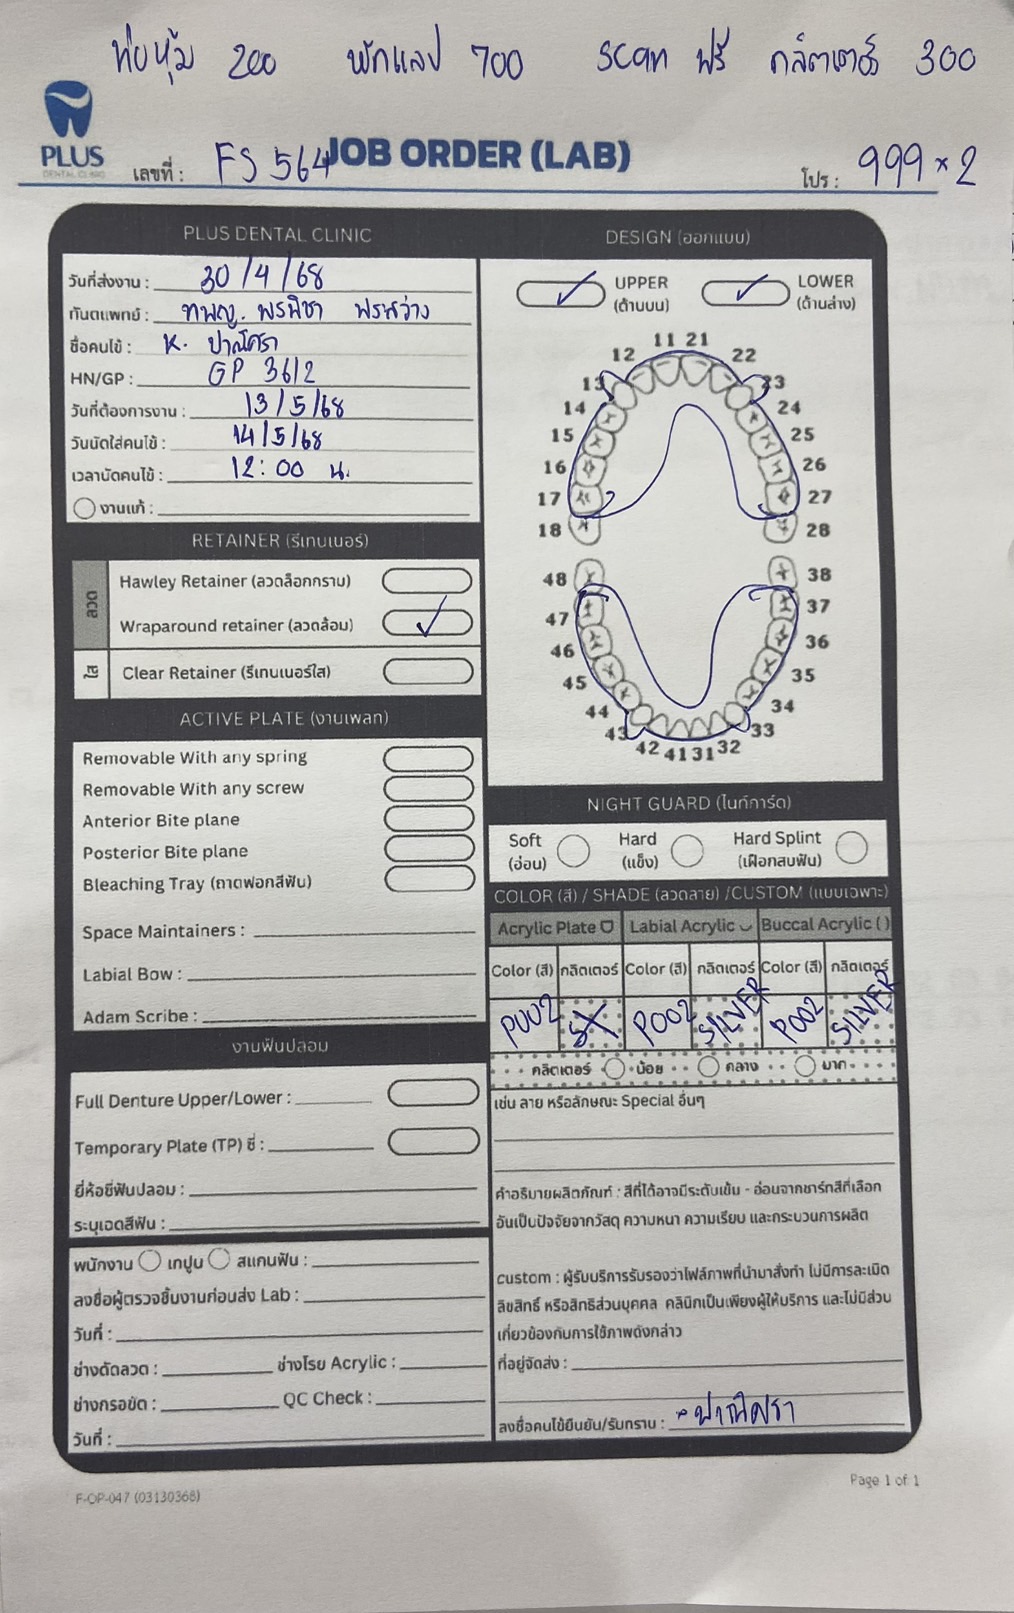 ท่อหุ้ม 200 พักแลป 700 scan ฟรี กลิตเตอร์ 300
PLUS
DENTAL CLINIC
เลขที่ : FS 564
JOB ORDER (LAB)
โปร : 999 × 2
PLUS DENTAL CLINIC
วันที่ส่งงาน : 30/4/68
ทันตแพทย์ : ทพญ. พรพิชา พรสว่าง
ชื่อคนไข้ : K. ปาณิศรา
HN/GP : GP 3612
วันที่ต้องการงาน : 13/5/68
วันนัดใส่คนไข้ : 14/5/68
เวลานัดคนไข้ : 12:00 น.
งานแก้ :
RETAINER (รีเทนเนอร์)
ลวด
Hawley Retainer (ลวดล็อกกราม)
Wraparound retainer (ลวดล้อม)
ใส
Clear Retainer (รีเทนเนอร์ใส)
ACTIVE PLATE (งานเพลท)
Removable With any spring
Removable With any screw
Anterior Bite plane
Posterior Bite plane
Bleaching Tray (ถาดฟอกสีฟัน)
Space Maintainers :
Labial Bow :
Adam Scribe :
งานฟันปลอม
Full Denture Upper/Lower :
Temporary Plate (TP) ซี่ :
ยี่ห้อซี่ฟันปลอม :
ระบุเฉดสีฟัน :
พนักงาน เทปูน สแกนฟัน :
ลงชื่อผู้ตรวจชิ้นงานก่อนส่ง Lab :
วันที่ :
ช่างดัดลวด : ช่างโรย Acrylic :
ช่างกรอขัด : QC Check :
วันที่ :
F-OP-047 (03130368)
DESIGN (ออกแบบ)
UPPER
(ด้านบน)
LOWER
(ด้านล่าง)
11 21
12 22
13 23
14 24
15 25
16 26
17 27
18 28
48 38
47 37
46 36
45 35
44 34
43 33
42 41 31 32
NIGHT GUARD (ไนท์การ์ด)
Soft
(อ่อน)
Hard
(แข็ง)
Hard Splint
(เฝือกสบฟัน)
COLOR (สี) / SHADE (ลวดลาย) /CUSTOM (แบบเฉพาะ)
Acrylic Plate Labial Acrylic Buccal Acrylic ( )
Color (สี) กลิตเตอร์ Color (สี) กลิตเตอร์ Color (สี) กลิตเตอร์
P002 P002 SILVER P002 SILVER
กลิตเตอร์ น้อย กลาง มาก
เช่น ลาย หรือลักษณะ Special อื่นๆ
คำอธิบายผลิตภัณฑ์ : สีที่ได้อาจมีระดับเข้ม - อ่อนจากชาร์ทสีที่เลือก
อันเป็นปัจจัยจากวัสดุ ความหนา ความเรียบ และกระบวนการผลิต
custom : ผู้รับบริการรับรองว่าไฟล์ภาพที่นำมาสั่งทำ ไม่มีการละเมิด
ลิขสิทธิ์ หรือสิทธิส่วนบุคคล คลินิกเป็นเพียงผู้ให้บริการ และไม่มีส่วน
เกี่ยวข้องกับการใช้ภาพดังกล่าว
ที่อยู่จัดส่ง :
ลงชื่อคนไข้ยืนยัน/รับทราบ : ปาณิศรา
Page 1 of 1